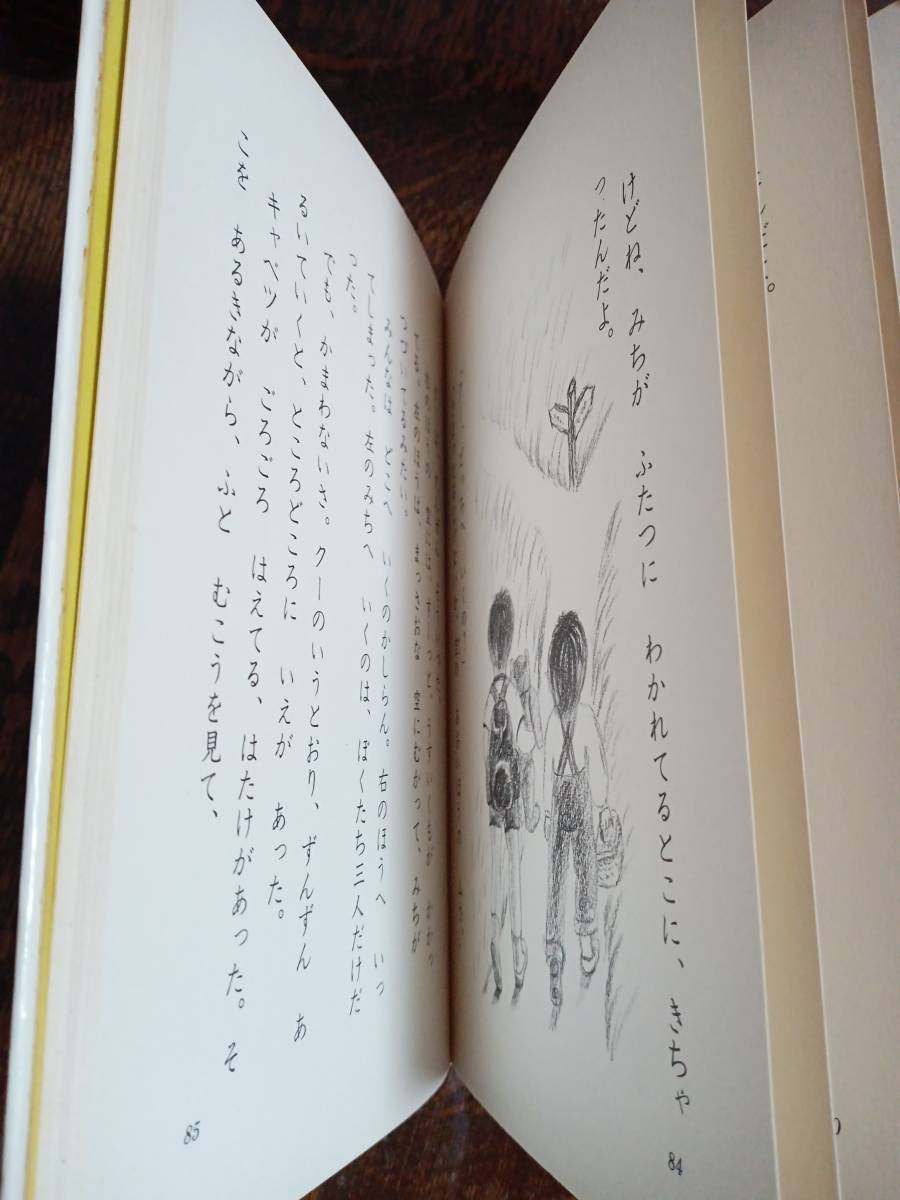 けどね、 みちが ふたつに わかれてるとこに、きちゃ
ったんだよ。
84
空には、すーっと、うすいくもが かかっ
てる。左のほうは、まっさおな 空にむかって、みちが
つづいてるみたい。
みんなは どこへ いくのかしらん。右のほうへ いっ
てしまった。左のみちへ いくのは、ぼくたち三人だけだ
った。
でも、かまわないさ。クーのいうとおり、ずんずん あ
るいていくと、ところどころに いえが あった。
キャベツが ごろごろ はえてる、はたけがあった。そ
こを あるきながら、ふと むこうを見て、
85